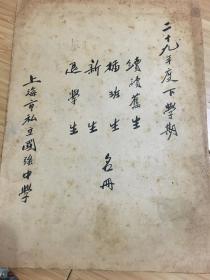 二十九年度下學期
續讀舊生
插班生
新生
退學生
名冊
上海市私立國強中學